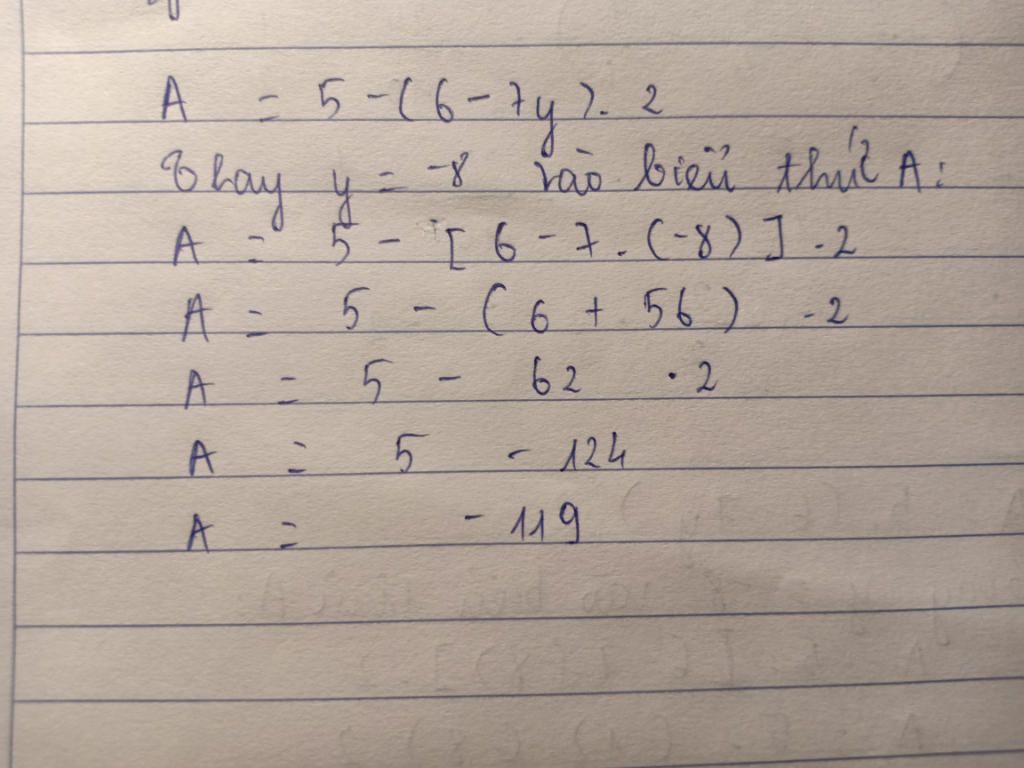 A = 5 - (6 - 7y). 2
Thay y = -8 vào biểu thức A:
A = 5 - [6 - 7. (-8)] . 2
A = 5 - (6 + 56) . 2
A = 5 - 62 . 2
A = 5 - 124
A = - 119